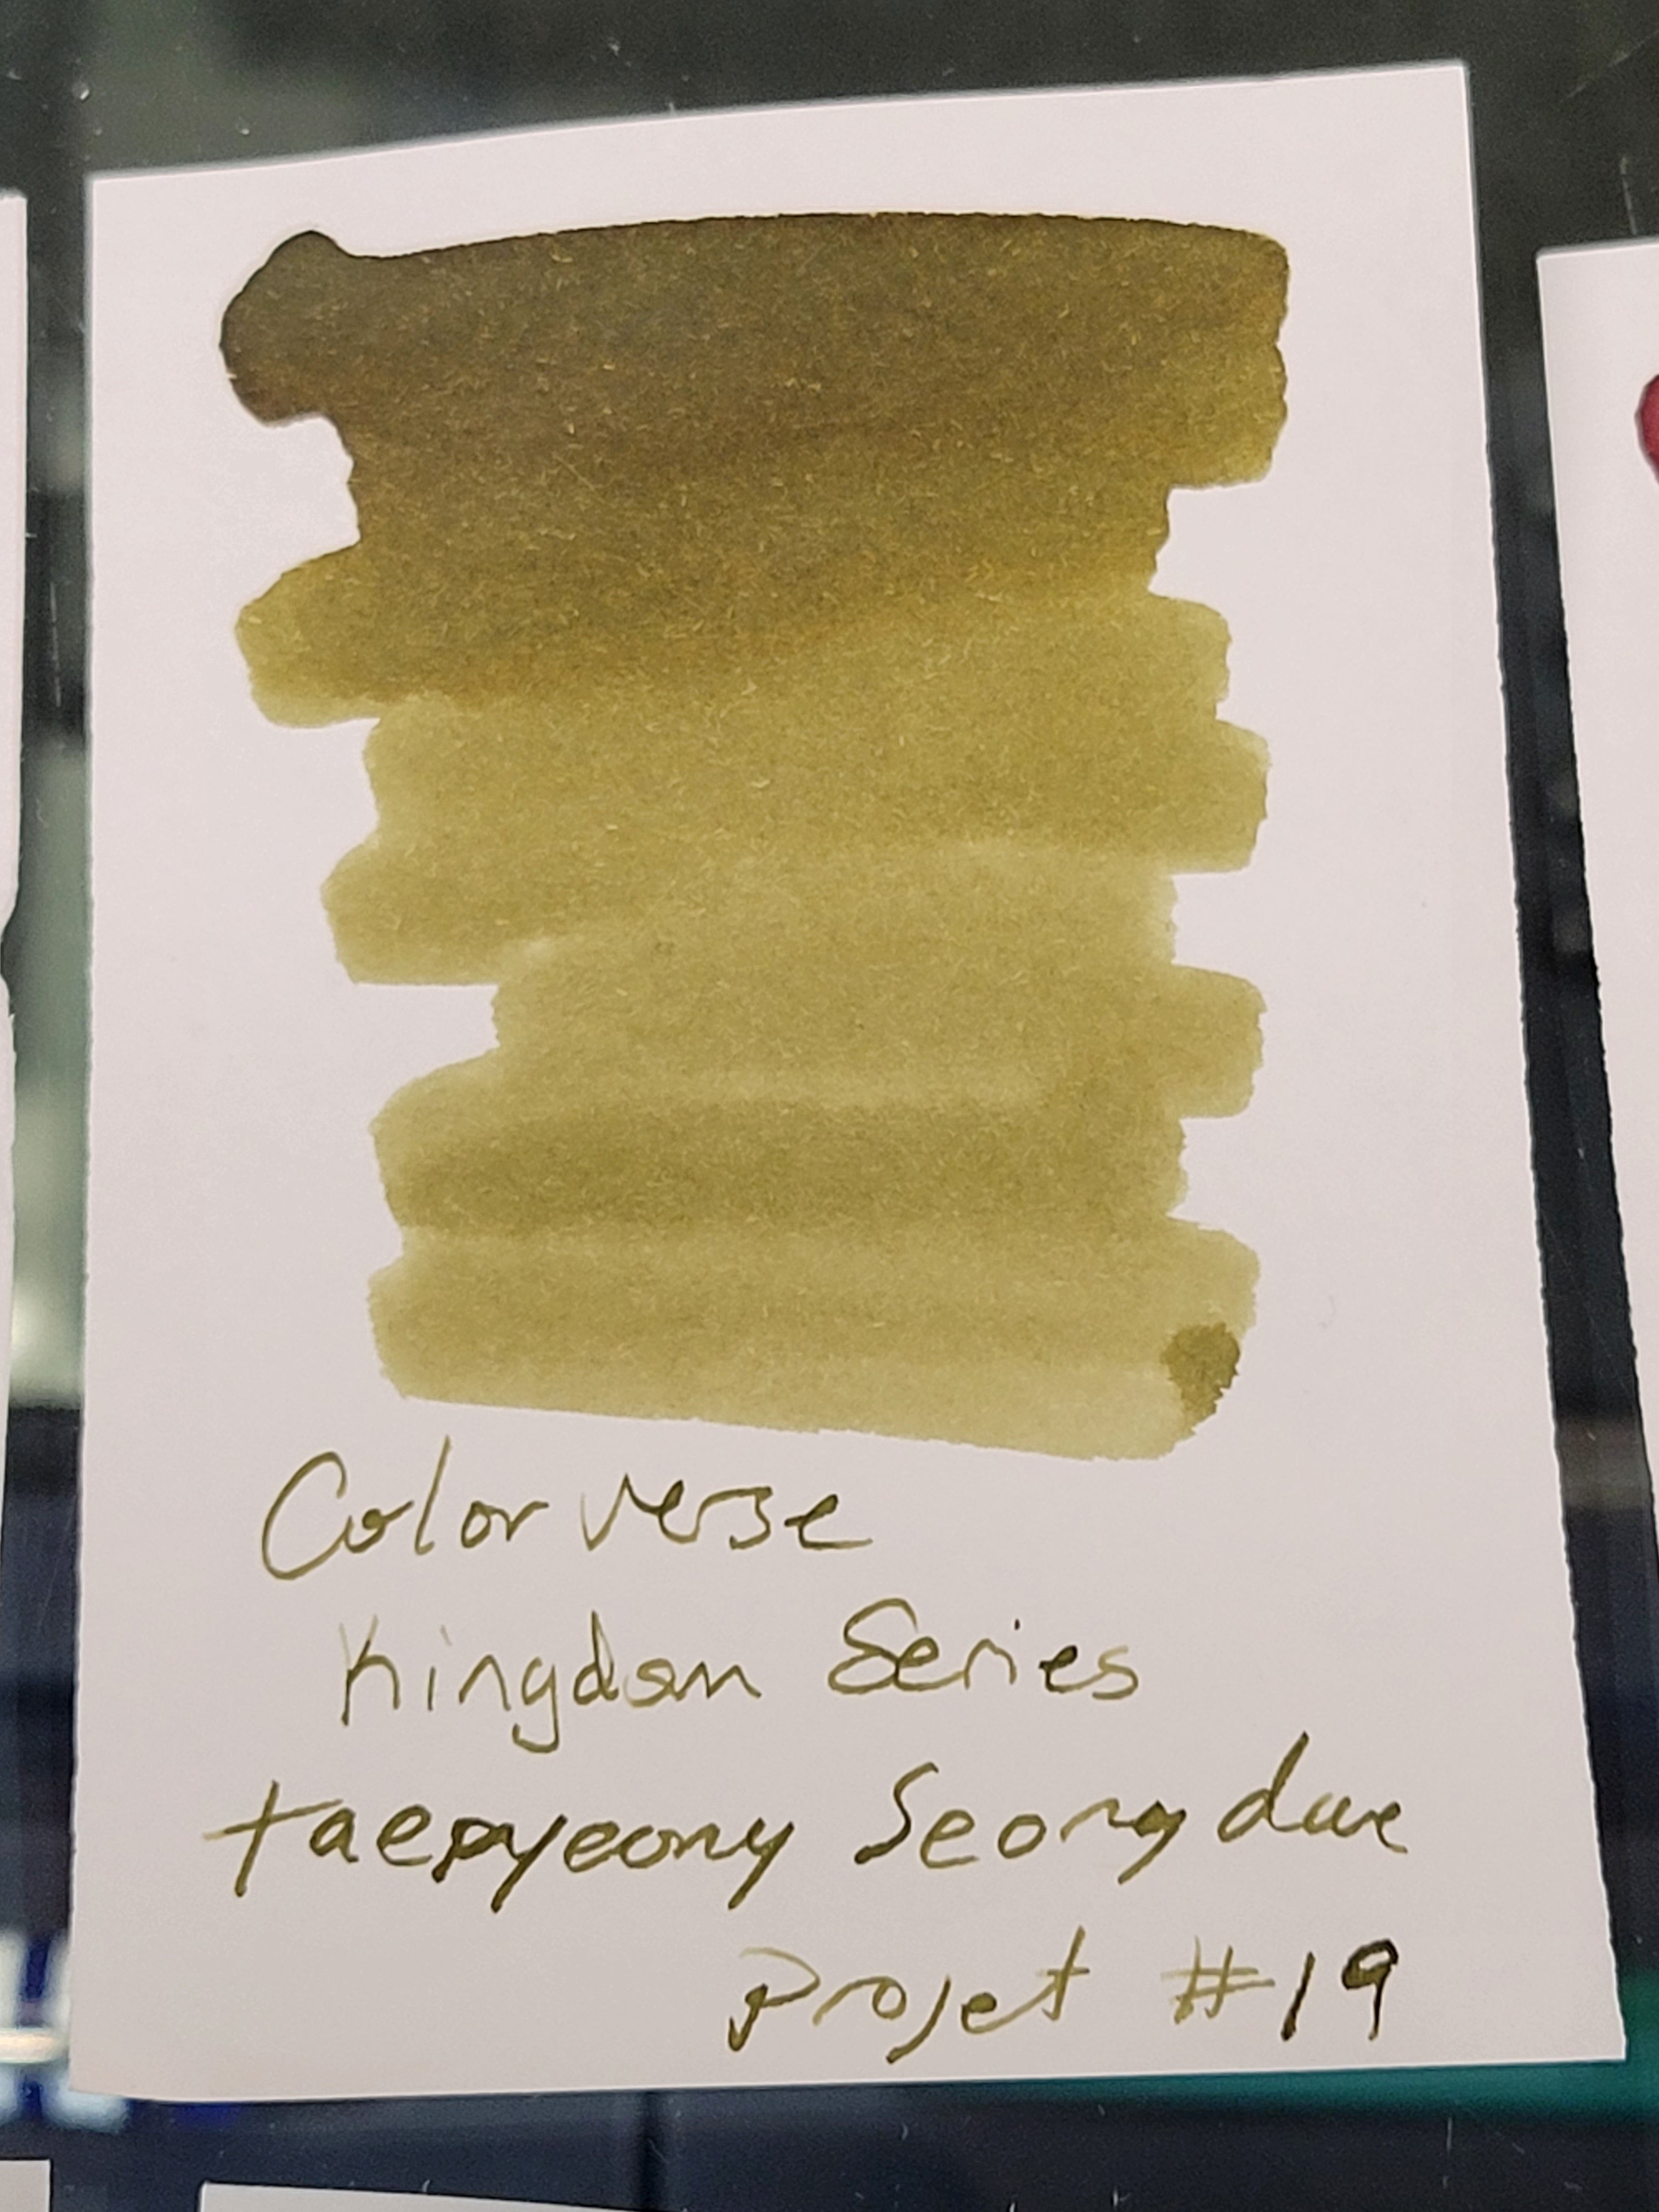 Colorverse
Kingdom Series
taepyeong Seongdae
Projet #19